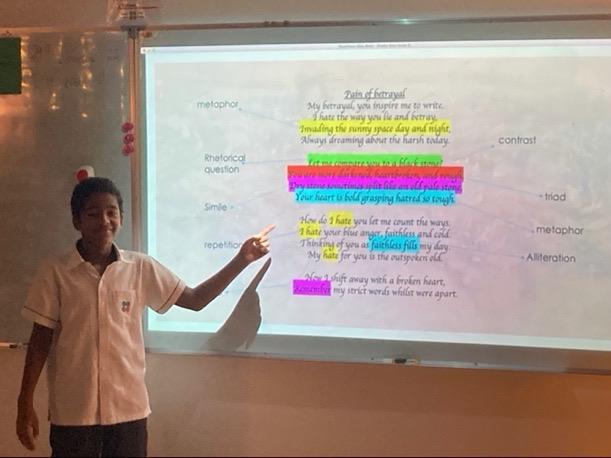 Pain of betrayal
My betrayal, you inspire me to write.
I hate the way you lie and betray,
Invading the sunny space day and night,
Always dreaming about the harsh today.
Let me compare you to a black stone?
You are more darkened, heartbroken, and rough.
Dry stone sometimes split like an old pale stone,
Your heart is bold grasping hatred so tough.
How do I hate you let me count the ways.
I hate your blue anger, faithless and cold.
Thinking of you as faithless fills my day.
My hate for you is the outspoken old.
Now I shift away with a broken heart,
Remember my strict words whilst were apart.
metaphor
Rhetorical
question
Simile
repetition
contrast
triad
metaphor
Alliteration